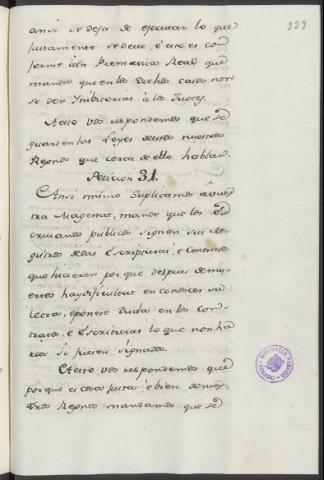 339
ansi se deja de ejecutar lo que
justamente se deve, è esto es con
forme à la Prematica Real que
manda que en los dichos casos non
se den Inibitorias à los Jueces.
A esto vos respondemos que se
guarden las Leyes destos nuestros
Regnos que cerca de ello hablan.
Peticion 31.
Ansi mismo Suplicamos à vues
tra Magestad, mande que los Es
crivanos publicos signen sus Re
gistros de las Escripturas, è Contratos
que hicieren por que despues de mu
ertos hay dificultat en conoscer su
letra, è ponese duda en los con
tratos, è Escripturas lo que non ha
ria si fuesen signados.
A esto vos respondemos que
por que es cosa justa è bien destos nues
tros Regnos mandamos que se
BIBLIOTECA PUBLICA
TOLEDO